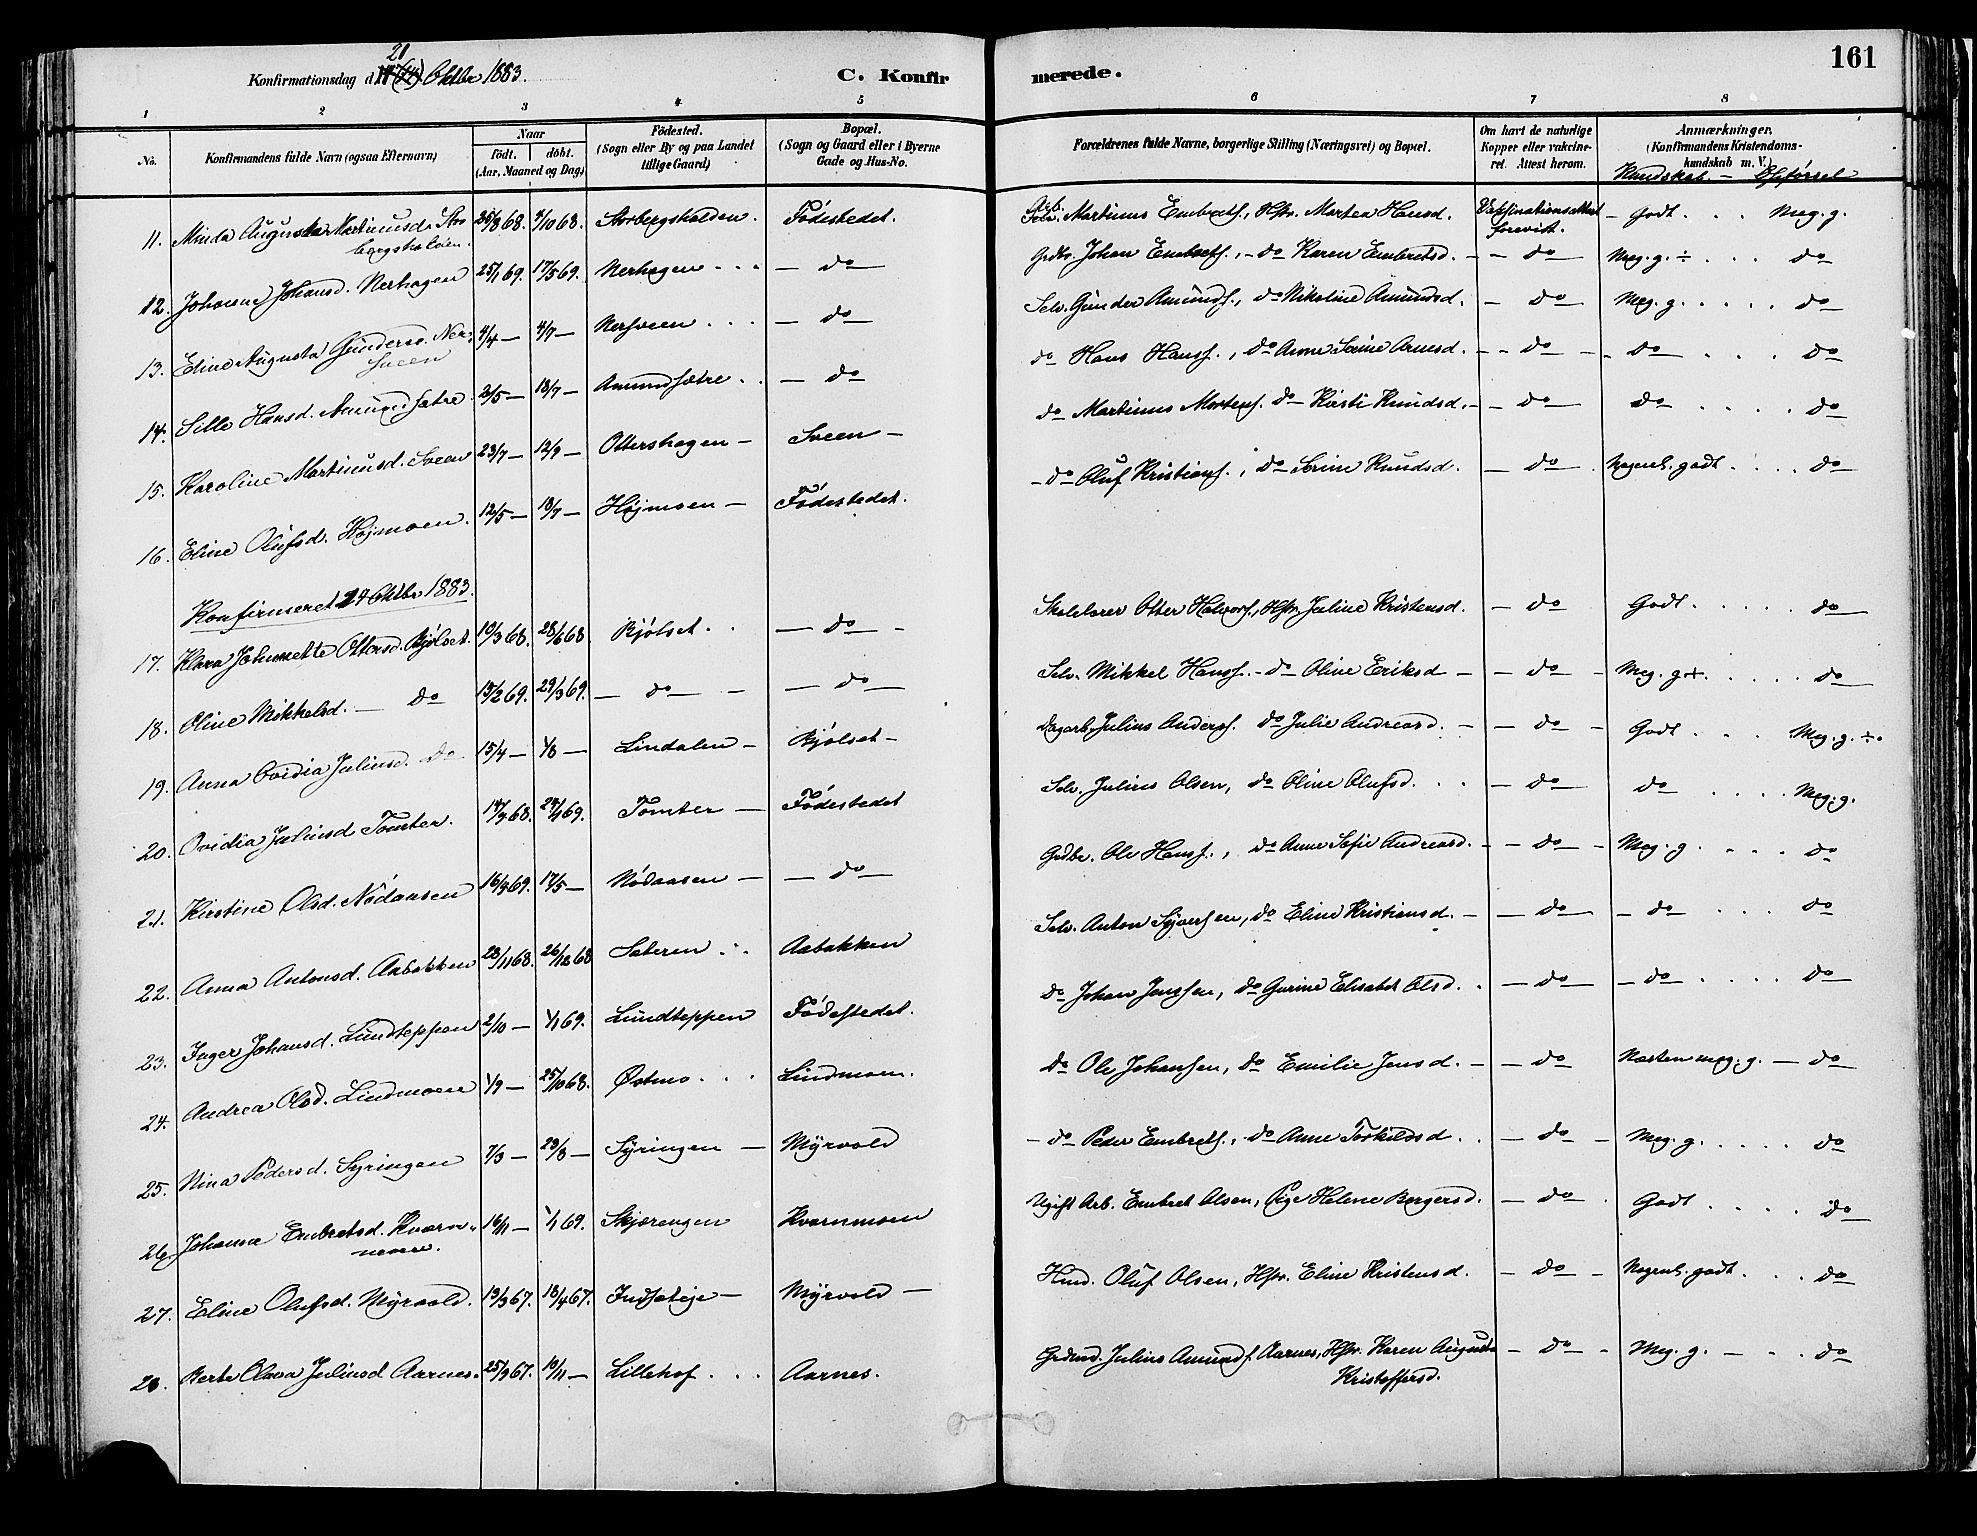 161
Konfirmationsdag d. 21 Oktbr 1883.
C. Konfirmerede.
1 2 3 4 5 6 7 8
No.
Konfirmandens fulde Navn (ogsaa Efternavn)
Naar
født. døbt.
(Aar, Maaned og Dag)
Fødested.
(Sogn eller By og paa Landet
tillige Gaard)
Bopæl.
(Sogn og Gaard eller i Byerne
Gade og Hus-No.
Forældrenes fulde Navne, borgerlige Stilling (Næringsvei) og Bopæl.
Om havt de naturlige
Kopper eller vakcine-
ret. Attest herom.
Anmærkninger.
(Konfirmandens Kristendoms-
kundskab m. V.)
Kundskab. — Opførsel
11. Minda Augusta Martinusd. Stor- 25/8 68. 4/10 68. Storbergshalden. Fødestedet. Martinus Embrets., Hstr. Martea Hansd. Vaksinationsattest – Godt . . Meg. g.
bergshalden. forevist.
12. Johanne Johansd. Nerhagen 25/1 69. 17/5 69. Nerhagen . . . — do — Grdbr. Johan Embrets., – do Karen Embretsd. – – do – Meg. g. ÷ . . . do
13. Eline Augusta Gundersd. Ner- 4/4 — 4/7 — Nersveen . . . — do — Selv. Gunder Amunds., do Nikoline Amundsd. – do – Meg. g. . . . . do
sveen
14. Sille Hansd. Amundsætre 2/5 — 18/7 — Amundsætre . . — do — do Hans Hanss., do Anne Serine Arnesd. – – do – – do . . . do
15. Karoline Martinusd. Sveen 23/7 — 12/9 — Ottershagen – Sveen – do Martinus Mortens. do Kirsti Knudsd. – – do – do . . . . do
16. Eline Olufsd. Højmoen. 12/5 — 18/7 — Højmoen – Fødestedet. – do Oluf Kristians., do Serine Knudsd. – do . Nogenl. godt . . . . do
Konfirmeret 24 Oktbr 1883.
17. Klara Johannette Ottersd. Bjølset. 10/3 68. 28/6 68. Bjølset . . — do – Skolelærer Otter Halvors., Hstr. Juline Kristensd. – do Godt . . . . . do
18. Oline Mikkelsd. — do 15/2 69. 29/3 69. — do — — do — Selv. Mikkel Hanss. – do Oline Eriksd – – do – Meg. g +. . . . . do
19. Anna Ovidia Juliusd. do 15/4 — 1/8 — Lindalen – Bjølset – Dagarb. Julius Anderss. do Julie Andreasd. – – do – Godt . . . Meg. g. ÷.
20. Ovidia Juliusd Tomter. Tomter — Fødestedet Selv. Julius Olsen, do Oline Olufsd. . . – do – do . . . . Meg. g.
21. Kirstine Olsd. Nødaasen 17/5 — Nødaasen — — do — Grdbr. Ole Hanss., do Anne Sofie Andreasd. – – do – Meg. g. . . . do
22. Anna Antonsd. Aabakken 23/11 68. 26/12 68 Sæteren . . Aabakken Selv. Anton Syversen, do Eline Kristiansd. – – do – – do . . . do
23. Inger Johansd. Lundteppen 2/10 — 1/1 69. Lundteppen Fødestedet. do Johan Jenssen, do Gurine Elisabet Olsd. . – do – – do . . . . do
24. Andrea Olsd. Lindmoen 1/9 — 25/10 68. Østmo . . . Lindmoen. do Ole Johansen, do Emilie Jensd. – – do Næsten meg. g. — do
25. Nina Pedersd. Syringen 7/3 — 23/8 — Syringen — Myrvold – do Peder Embrets., do Anne Torkildsd . . – do – Meg. g. . . . . do
26. Johanne Embretsd. Kværn- 16/11 — 1/1 69. Skjærengen Kværnmoen Ugift Arb. Embret Olsen, Pige Helene Børgersd. – do . Godt . . . . do
moen.
27. Eline Olufsd. Myrvold. 19/3 67. 18/4 67. Indseteje — Myrvold — Husd. Oluf Olsen, Hstr. Eline Kristensd. – do – Nogenl. godt . . . do
28. Berte Olava Juliusd Aarnes. 25/9 67. 10/11 — Lillehof . . . Aarnes. Grdmd. Julius Amunds. Aarnes, Hstr. Karen Augusta – do – Meg. g. – . . do
Kristoffersd.